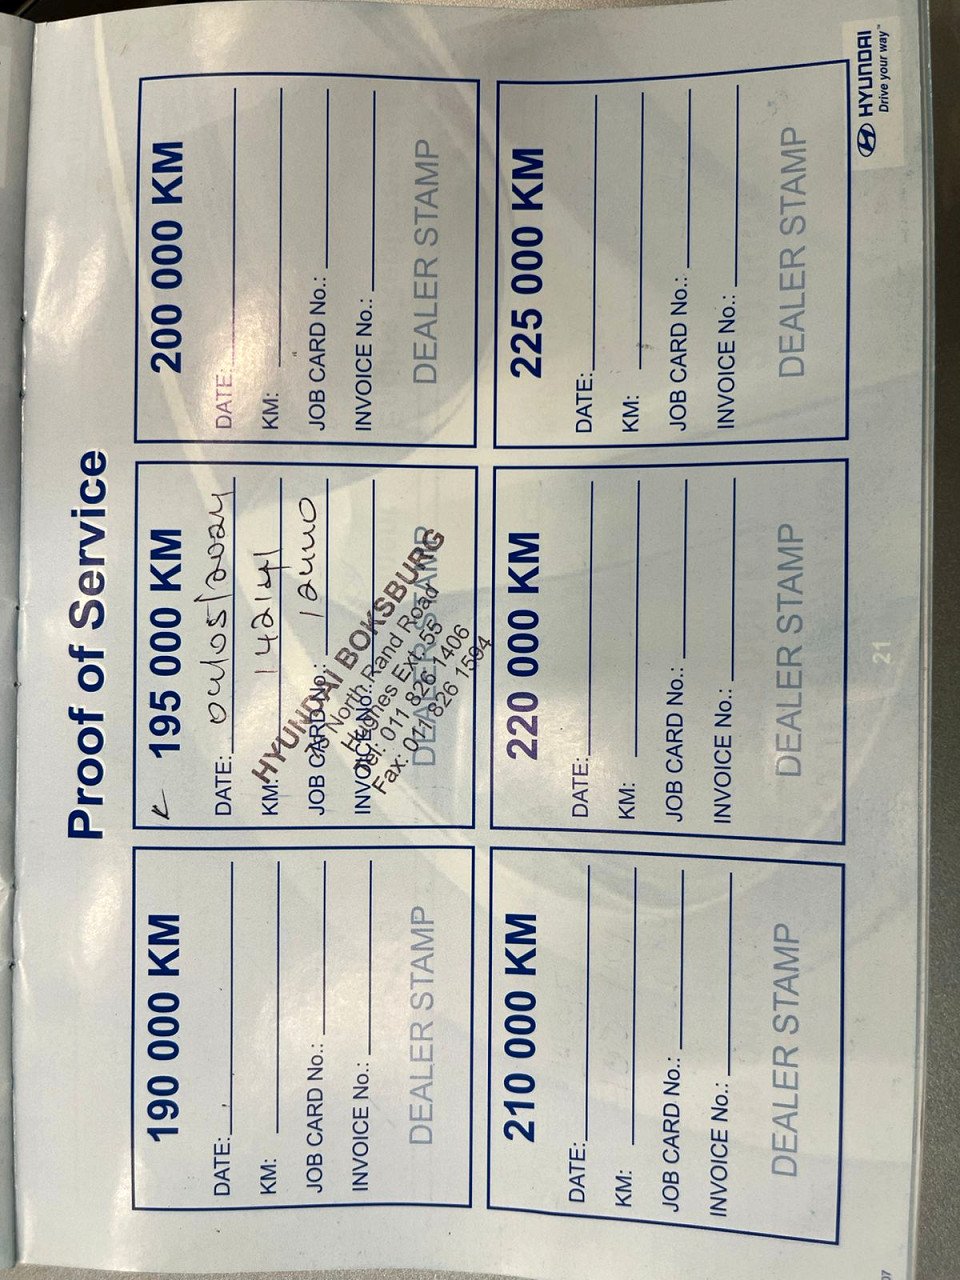 Proof of Service
190 000 KM
DATE:
KM:
JOB CARD No.:
INVOICE No.:
DEALER STAMP
195 000 KM
DATE: 04/05/2024
KM: 142141
JOB CARD No.: 12440
INVOICE No.:
DEALER STAMP
HYUNDAI BOKSBURG
North Rand Road
Hughes Ext. 55
Tel: 011 826 1406
Fax: 011 826 1594
200 000 KM
DATE:
KM:
JOB CARD No.:
INVOICE No.:
DEALER STAMP
210 000 KM
DATE:
KM:
JOB CARD No.:
INVOICE No.:
DEALER STAMP
220 000 KM
DATE:
KM:
JOB CARD No.:
INVOICE No.:
DEALER STAMP
225 000 KM
DATE:
KM:
JOB CARD No.:
INVOICE No.:
DEALER STAMP
21
HYUNDAI
Drive your way™